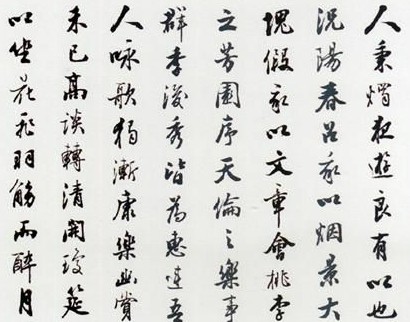 人秉燭夜遊良有以也
况陽春召我以烟景大
塊假我以文章會桃李
之芳園序天倫之樂事
群季俊秀皆為惠連吾
人咏歌獨慚康樂幽賞
未已高談轉清開瓊筵
以坐花飛羽觴而醉月